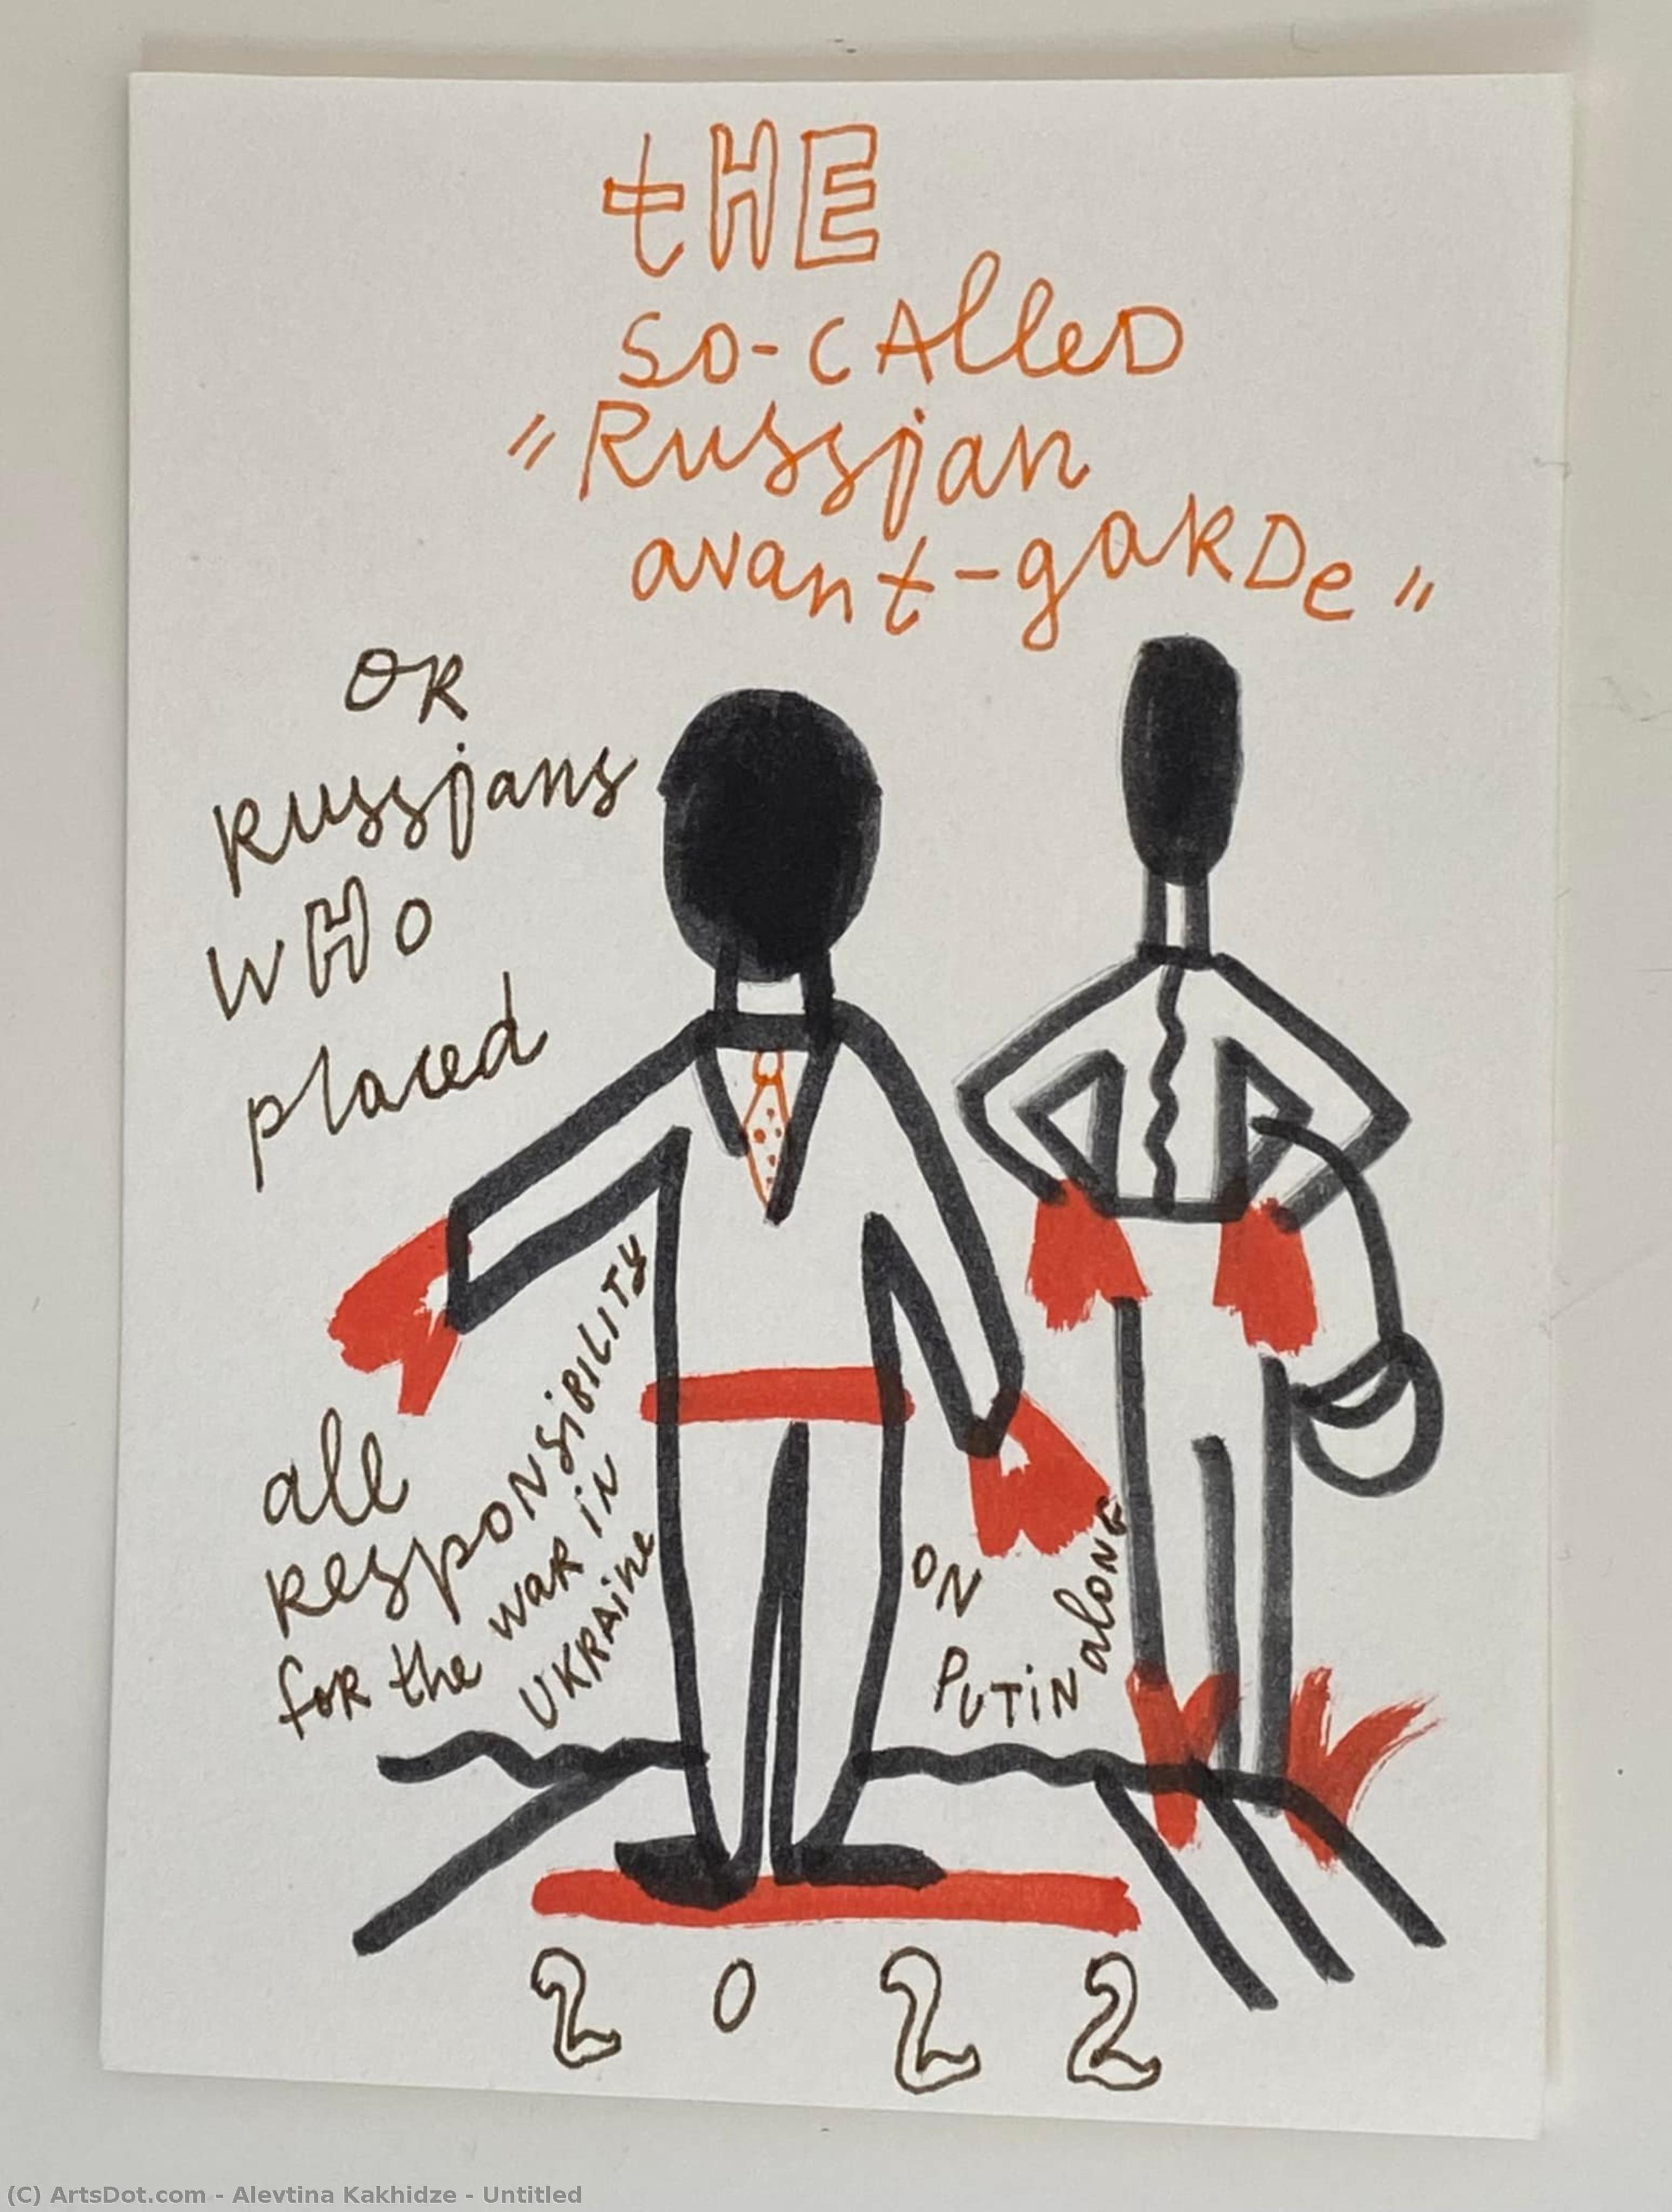 tHE
so-cAlleD
"Russjan
avant-gaRDe"
OR
Russjans
WHO
placed
all
ResponsiBILITY
foR the waR in
UKRAine
ON
PUTiN alone
2022
(C) ArtsDot.com - Alevtina Kakhidze - Untitled